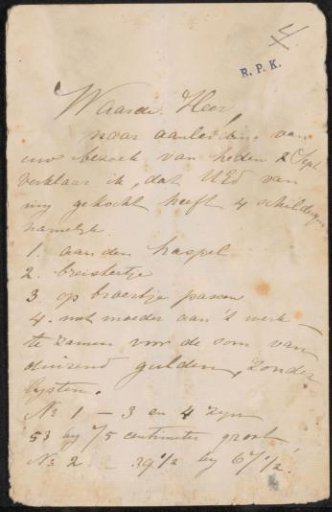 4
R. P. K.
Waarde Heer,
naar aanleiding van
uw bezoek van heden 2 Sept
verklaar ik, dat UEd van
mij gekocht heeft 4 schilderijen
namelijk
1. aan den haspel
2. breistertje
3. op broertje passen
4. met moeder aan 't werk
te zamen voor de som van
duizend gulden, zonder
lijsten.
No 1 – 3 en 4 zijn
53 bij 75 centimeter groot
No 2 39 1/2 bij 67 1/2.